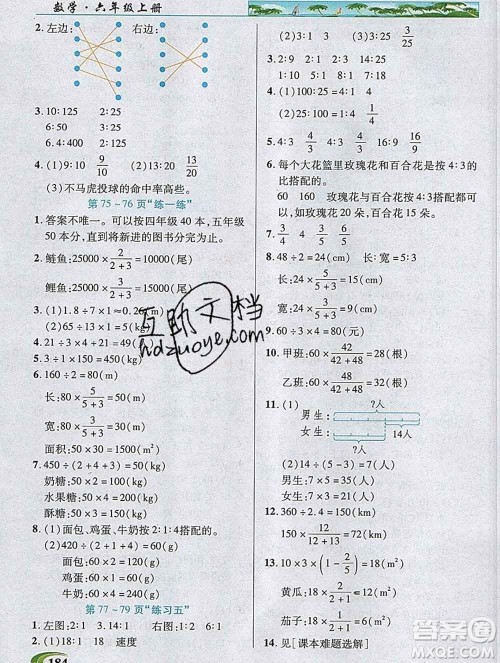 数学·六年级上册
2. 左边: 右边:
3. 10∶125 2∶25
6∶50 3∶25
400∶32 25∶2
4. (1)9∶10 9/10 (2)13∶20 13/20
(3)不马虎投球的命中率高些。
第 75～76 页“练一练”
1. 答案不唯一。可以按四年级 40 本,五年级
50 本分,直到将新进的图书分完为止。
2. 鲢鱼:25000×2/(2+3)=10000(尾)
鲤鱼:25000×3/(2+3)=15000(尾)
3. (1)1.8÷7×1≈0.26(m)
(2)65÷13×2=10(m)
4. 21÷3×49÷1=49
5. 3÷1×150=
6. 160÷2=80(m)
长:80×5/(5+3)=50(m)
宽:80×3/(5+3)=30(m)
面积:50×30=1500(m²)
7. 450÷(2+4+3)=50(kg)
奶糖:50×2=100(kg)
水果糖:50×4=200(kg)
酥糖:50×3=150(kg)
8. (1)面包、鸡蛋、牛奶按 2∶1∶4搭配的。
(2)420÷(2+1+4)=60(g)
面包:60×2=120(g)
鸡蛋:60×1=60(g)
牛奶:60×4=240(g)
第 77～79 页“练习五”
1. 左图:2∶1 右图:1∶6
2. (1)18∶1 18 速度
184
(2)3∶1 3 (3)1∶25 1/25
3. 1∶4 4∶3 5∶2 5∶1
1∶8 10∶9 2∶1 9∶2
4. (1)100∶25=4∶1 4
(2)25∶100=1∶4 1/4
5. 4∶3 4/3 4∶9 4/9 3∶4 3/4
6. 每个大花篮里玫瑰花和百合花是按 4∶3
的比搭配的。
60 160 玫瑰花与百合花按 4∶3搭配都可
以,如玫瑰花 20 朵,百合花 15 朵。
7. 3/4
8. 48÷2=24(cm)
长:24×5/(5+3)=15(cm)
宽:24×3/(5+3)=9(cm)
9. 60÷3×4=80(元)
10. 甲班:60×42/(42+48)=28(根)
乙班:60×48/(42+48)=32(根)
11. (1)
?人
男生:
女生:
14人
?人
(2)14÷(7-5)=7(人)
男生:7×5=35(人)
女生:7×7=49(人)
12. 360÷2.4=150(km)
13. 10×3×(1-2/5)=18(m²)
黄瓜:18×2/(2+1)=12(m²)
茄子:18×1/(2+1)=6(m²)
14. 见[课本难题选解]
互助文档
hdzuoye.com
答案圈
MXQE.COM